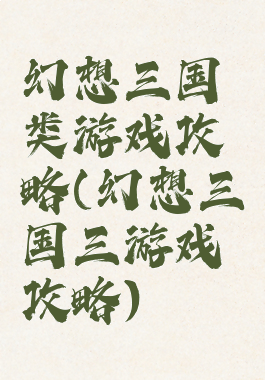 幻想三国
类游戏攻
略(幻想三
国三游戏
攻略)